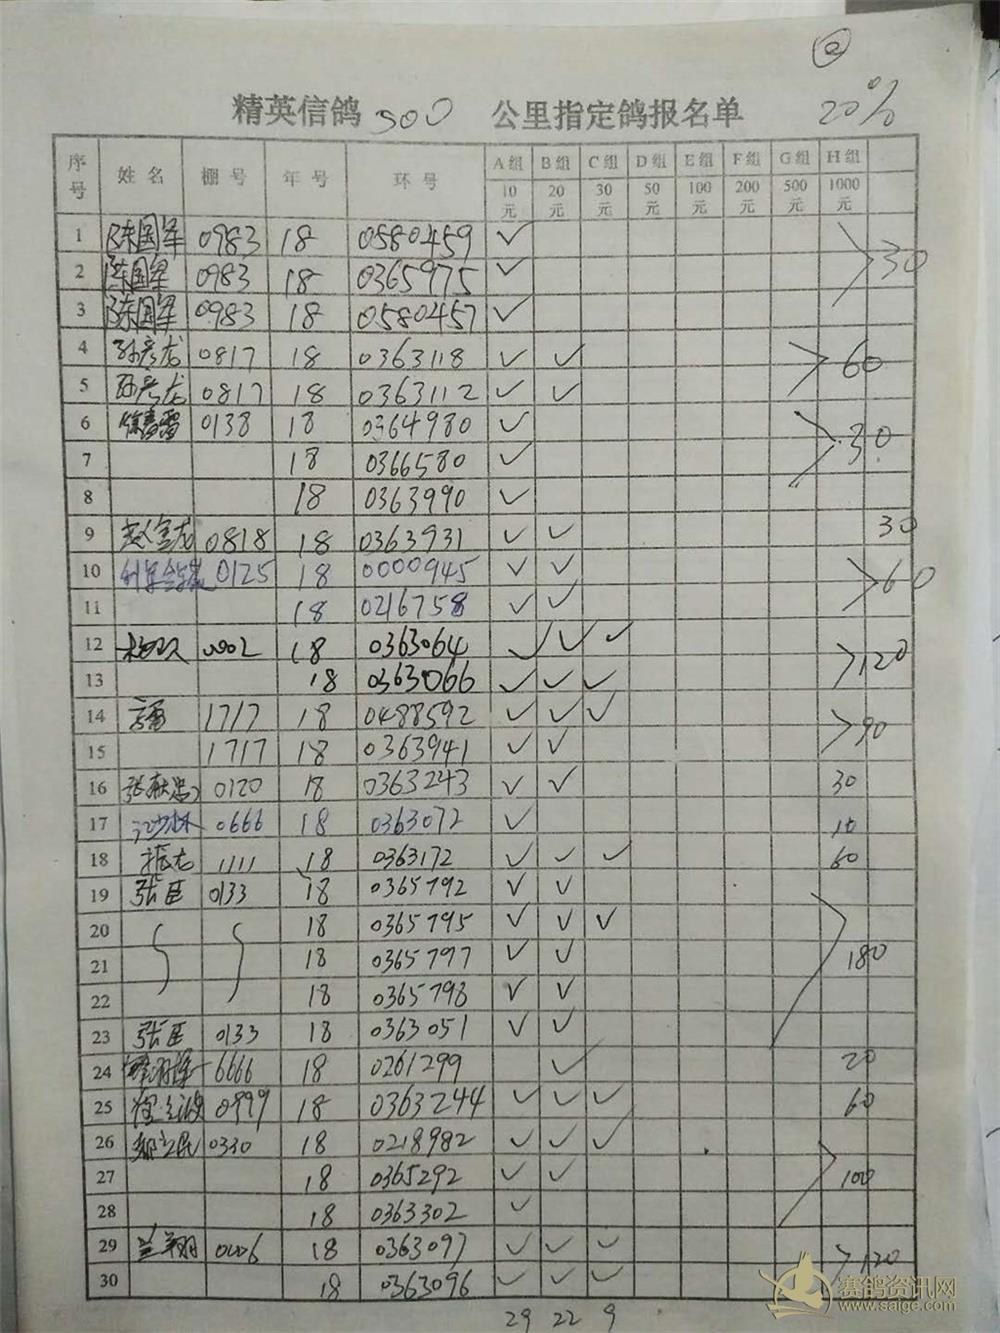 ②
20%
精英信鸽 500 公里指定鸽报名单
序号 姓名 棚号 年号 环号 A组 B组 C组 D组 E组 F组 G组 H组
10元 20元 30元 50元 100元 200元 500元 1000元
1 陈国军 0983 18 0580459 ✓
2 陈国军 0983 18 0365975 ✓ 30
3 陈国军 0983 18 0580457 ✓
4 孙彦龙 0817 18 0363118 ✓ ✓ 60
5 孙彦龙 0817 18 0363112 ✓ ✓
6 0138 18 0364980 ✓ 30
7 18 0366580 ✓
8 18 0363990 ✓
9 赵金龙 0818 18 0363931 ✓ ✓ 30
10 0125 18 0000945 ✓ ✓ 60
11 18 0216758 ✓ ✓
12 0002 18 0363064 ✓ ✓ ✓ 120
13 18 0363066 ✓ ✓ ✓
14 1717 18 0488592 ✓ ✓ ✓ 90
15 1717 18 0363941 ✓ ✓
16 张献忠 0120 18 0363243 ✓ ✓ 30
17 0666 18 0363072 ✓ 10
18 振龙 1111 18 0363172 ✓ ✓ ✓ 60
19 张臣 0133 18 0365792 ✓ ✓
20 18 0365795 ✓ ✓ ✓
21 18 0365797 ✓ ✓ 180
22 18 0365798 ✓ ✓
23 张臣 0133 18 0363051 ✓ ✓
24 6666 18 0261299 ✓ 20
25 0999 18 0363244 ✓ ✓ ✓ 60
26 郑立民 0330 18 0218982 ✓ ✓ ✓
27 18 0365292 ✓ ✓ 100
28 18 0363302 ✓
29 兰翔 0006 18 0363097 ✓ ✓ ✓ 120
30 18 0363096 ✓ ✓ ✓
29 22 9
赛鸽资讯网
www.saige.com